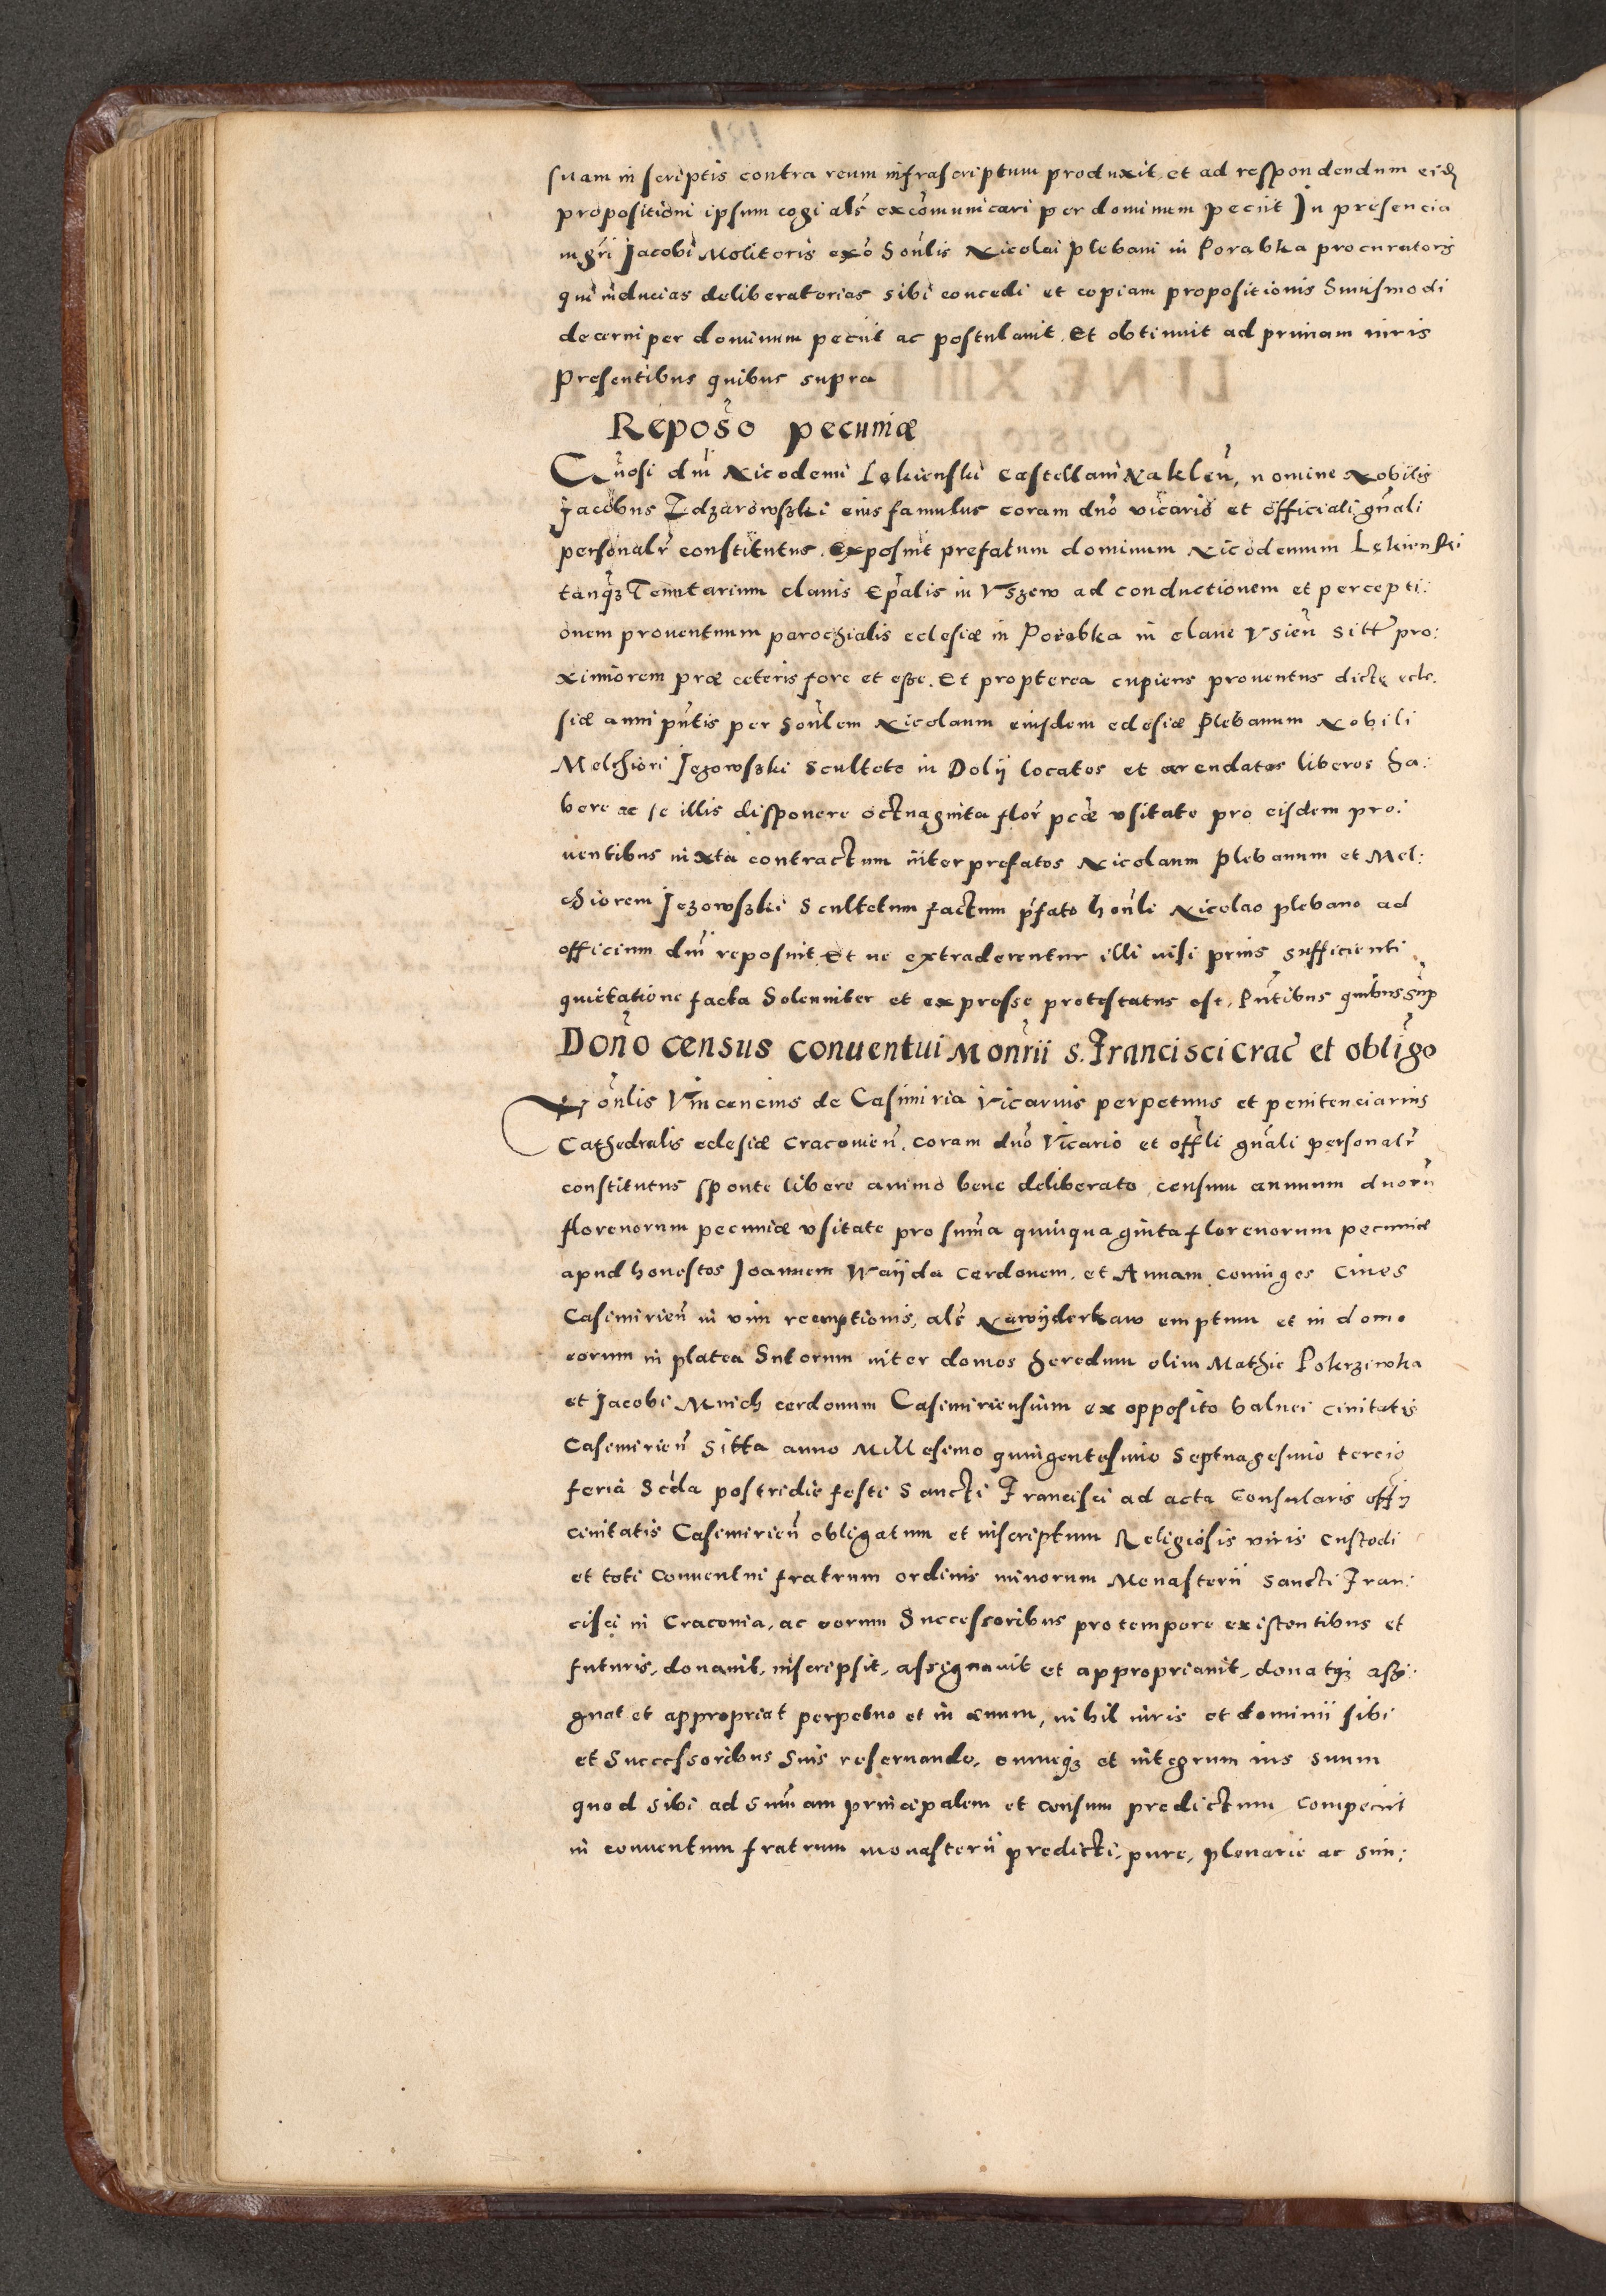 suam in scriptis contra reum infrascriptum produxit, et ad respondendum eidē
propositioni ipsum cogi als̃ excōmunicari per dominum peciit In presencia
mgri Jacobi Molitoris exõ honlis Nicolai plebani in Porabka procuratoris
qui inducias deliberatorias sibi concedi et copiam propositionis huiusmodi
decerni per dominum peciit ac postulauit. Et obtinuit ad primam iuris
Presentibus quibus supra
Reposo pecuniæ
Gnosi dnī Nicodemi Lękienski Castellani Naklen̄, nomine Nobilis
Jacobus Zdzarowski eius famulus coram dno vicario et officiali gnāli
personalr̃ constitutus. Exposuit prefatum dominum Nicodemum Lękienski
tanq̃ȝ Tenutarium clauis Epalis in Vszew ad conductionem et percepti:
onem prouentuum parochialis eclesiæ in Porabka in claue Vsien̄ sitt̃ pro:
ximiorem præ ceteris fore et esse. Et propterea cupiens prouentus dictę ecle.
siæ anni pn̄tis per honlem Nicolaum eiusdem eclesiæ Plebanum Nobili
Melchiori Jezowski sculteto in Dolij locatos et arendatos liberos ha:
bere ac se illis disponere octuaginta flor̃ pcæ vsitate pro eisdem pro:
uentibus iuxta contractum inter prefatos Nicolaum Plebanum et Mel:
chiorem Jezowski Scultetum factum pfato honli Nicolao plebano ad
officium dnī reposuit Et ne extraderentur illi nisi prius sufficienti
quietatione facta Solenniter et expresse protestatus est, Pn̄tibus quibus sup
Dono census conuentui Monrii s. Francisci Crac̄ et obligo
Honlis Vincencius de Casimiria Vicarius perpetuus et penitenciarius
Cathedralis eclesiæ Cracouien̄. coram dno Vicario et offli gnāli personalr̃
constitutus sponte libere animo bene deliberato, censum annuum duorū
florenorum pecuniæ vsitate pro sum̄a quinquaginta florenorum pecuniæ
apud honestos Joannem Waijda Cerdonem, et Annam coniuges Ciues
Casimirien̄ in vim reemptionis, als̃ Nawijderkaw emptum et in domo
eorum in platea Sutorum inter domos heredum olim Mathie Pokrziwka
et Jacobi Mnich cerdonum Casimiriensium ex opposito balnei ciuitatis
Casimirien̄ Sitta anno Millesimo quingentesimo Septuagesimo tercio
feria Scda postridie festi Sancti Francisci ad acta Consularis offij
ciuitatis Casimirien̄ obligatum et inscriptum Religiosis viris Custodi
et toti Conuentui fratrum ordinis minorum Monasterii Sancti Fran:
cisci in Craconia, ac eorum Successoribus pro tempore existentibus et
futuris, donauit, inscripsit, assignauit et appropriauit, donatq̃ȝ assi:
gnat et appropriat perpetuo et in æuum, nihil iuris et dominii sibi
et Successoribus Suis reseruando, omneq̃ȝ et integrum ius suum
quod sibi ad sum̄am principalem et Censum predictum Competiit
in conuentum fratrum monasterii predicti, pure, plenarie ac sim: